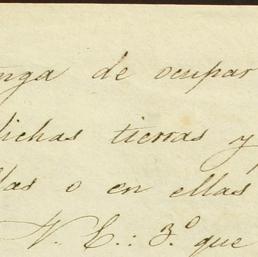 nga de ocupar
dichas tierras y
llas o en ellas
N. E.: 3.º que